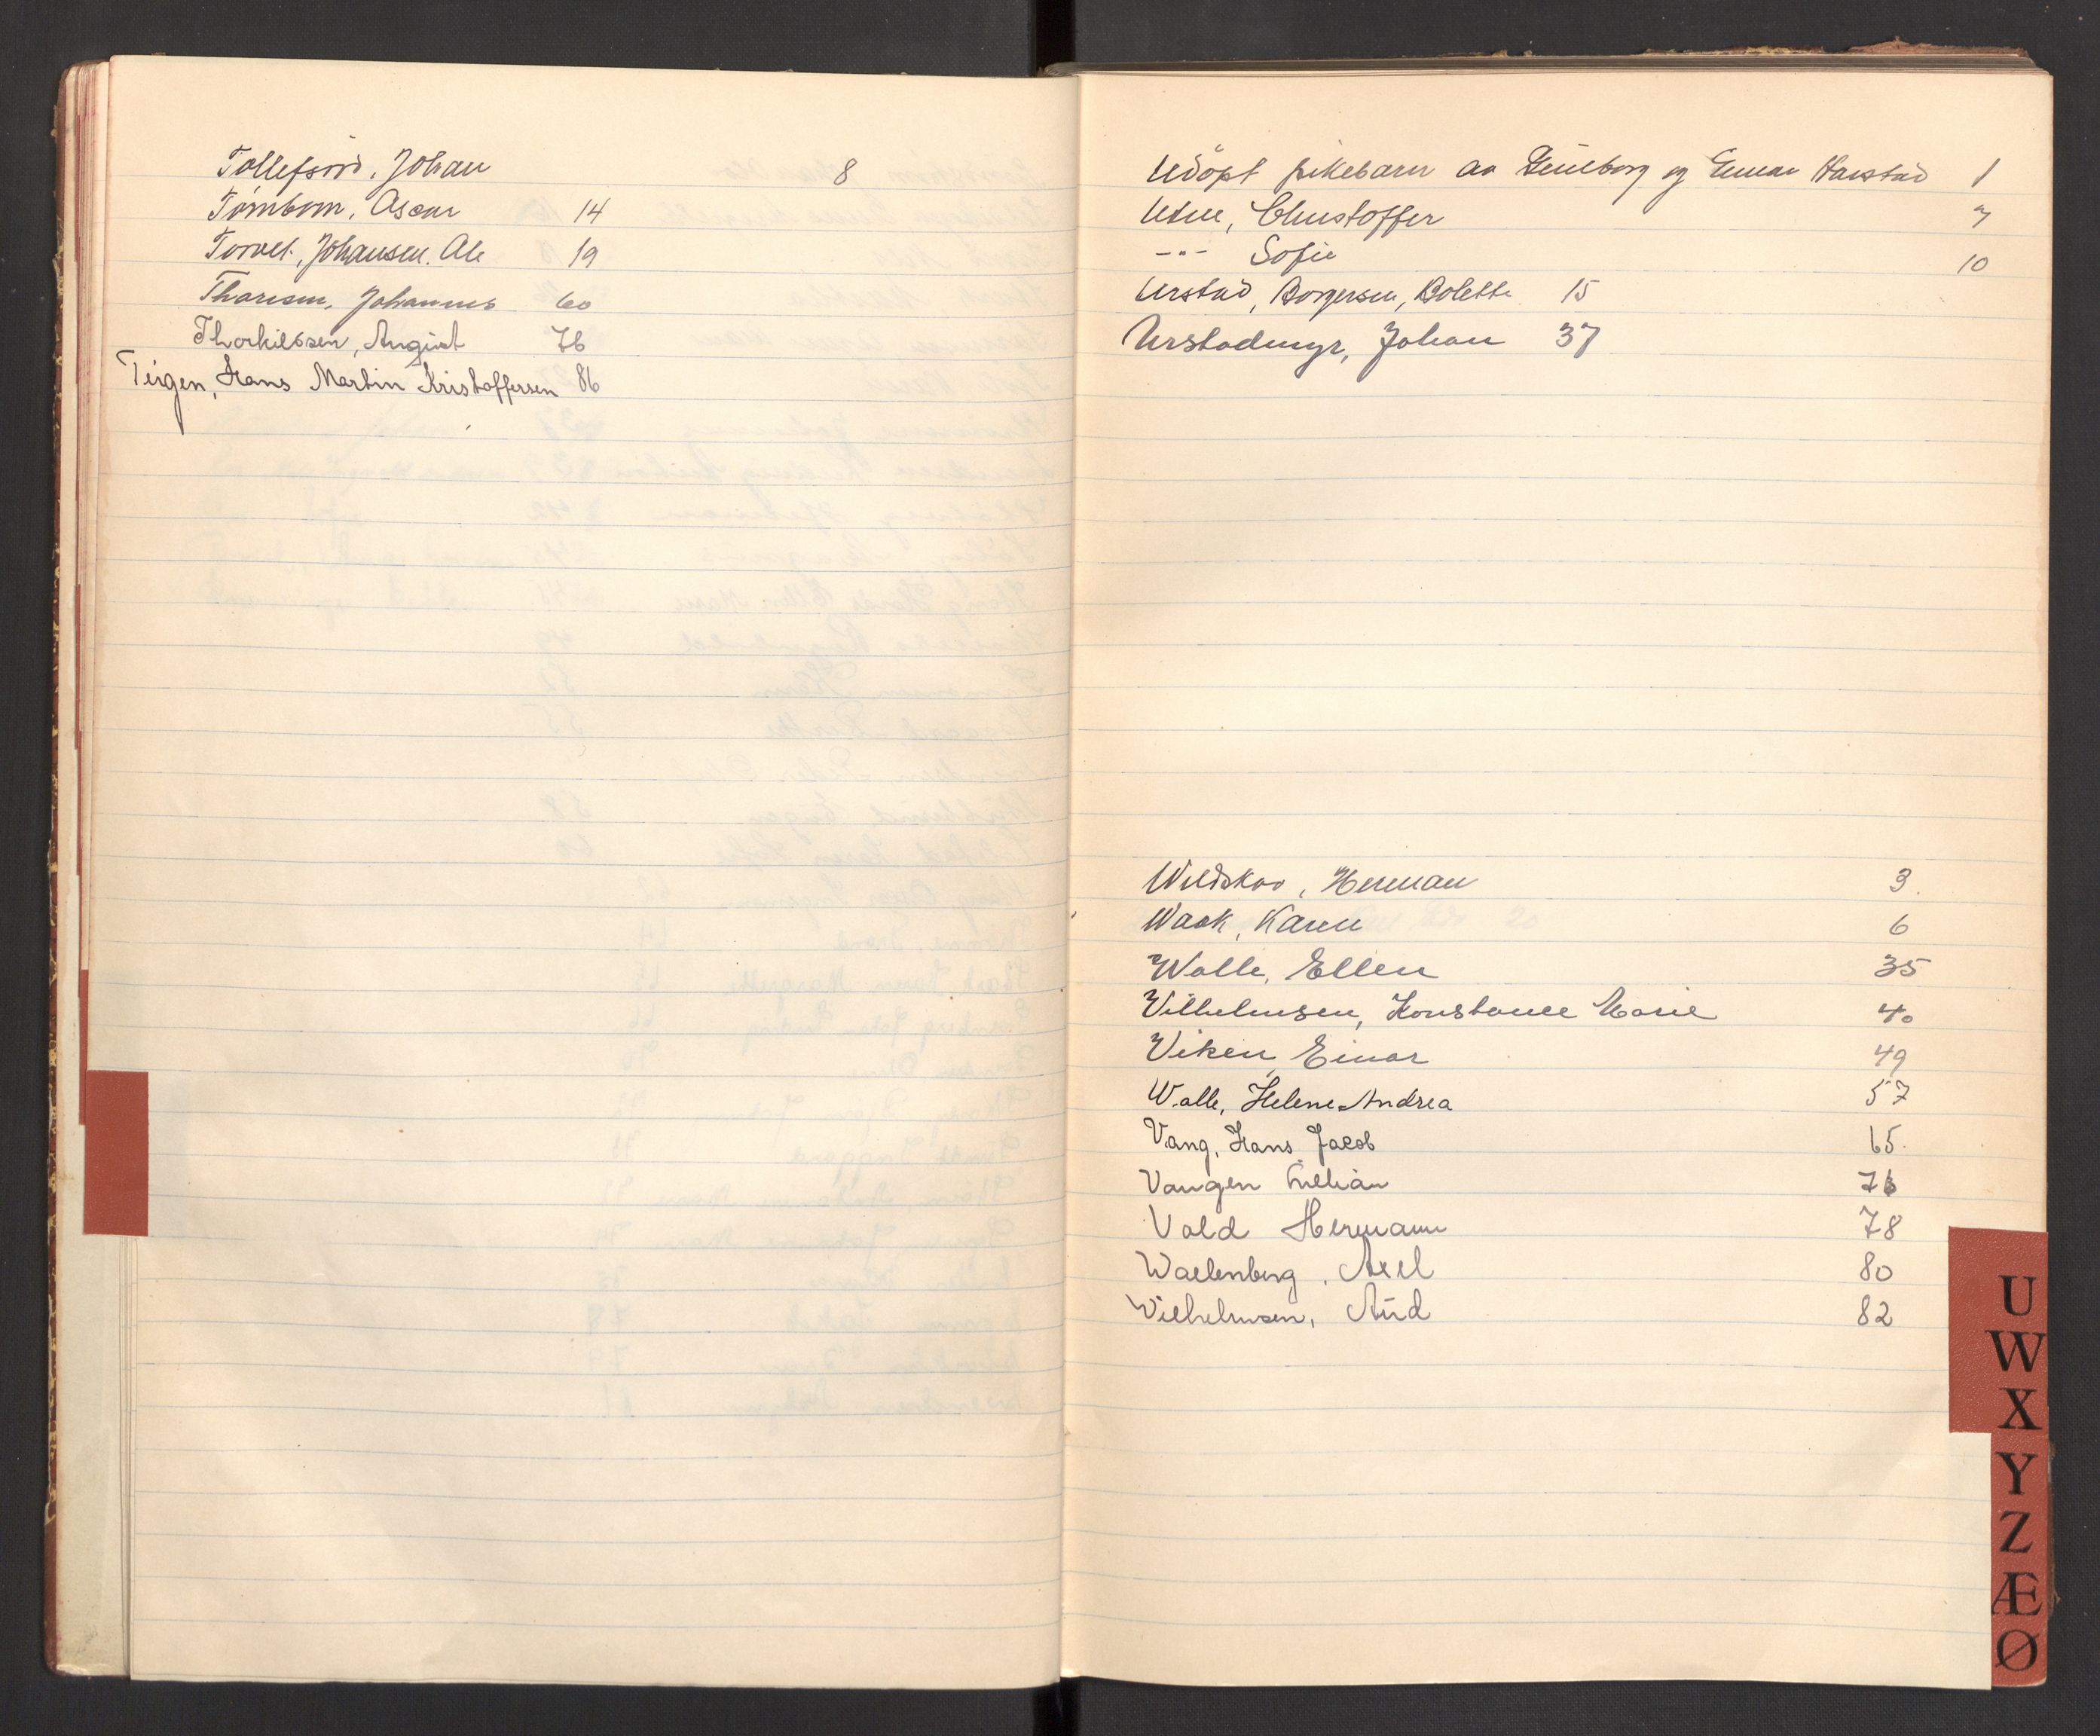 Tollefsrød, Johan 8
Tørnbom, Oscar 14
Torvet, Johansen. Ole 19
Thoresen, Johannes 60
Thorkilssen, August 76
Teigen, Hans Martin Kristoffersen 86
Udöpt pikebarn av og Einar Harstad 1
Utne, Christoffer 7
-"- Sofie 10
Urstad, Borgersen, Bolette 15
Urstadmyr, Johan 37
Wildskov, Herman 3.
Waak, Karen 6
Walle, Ellen 35
Vilhelmsen, Konstance Marie 40
Viken, Einar 49
Walle, Helene Andrea 57
Vang, Hans Jacob 65.
Vangen Lillian 76
Vold Hermann 78
Wallenberg, Axel 80
Wilhelmsen, Aud 82
U
W
X
Y
Z
Æ
Ø